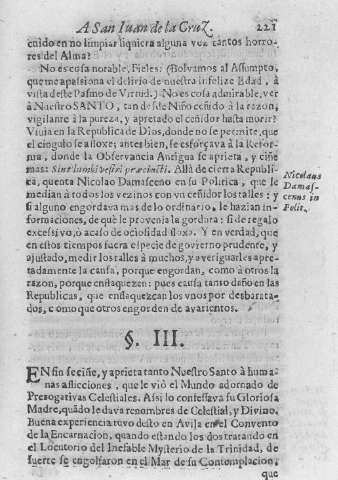 A San Iuan de la Cruz.
221
cuido en no limpiar siquiera alguna vez tantos horro-
res del Alma?
No es cosa notable, Fieles: (Bolvamos al Assumpto,
que me apassiona el delirio de nuestra infelize Edad, à
vista deste Pasmo de Virtud.) No es cosa admirable, ver
à Nuestro SANTO, tan desde Niño ceñido à la razon,
vigilante à la pureza, y apretado el ceñidor hasta morir?
Viuia en la Republica de Dios, donde no se permite, que
el cingulo se afloxe; antes bien, se esforçava à la Refor-
ma, donde la Observancia Antigua se aprieta, y ciñe
mas: Sint lumbi vestri præcincti. Allà de cierta Republi-
ca, quenta Nicolao Damasceno en su Politica, que le
median à todos los vezinos con vn ceñidor los talles: y
si alguno engordava mas de lo ordinario, le hazian in-
formaciones, de què le provenia la gordura: si de regalo
excessivo, ò acaso de ociosidad floxa. Y en verdad, que
en estos tiempos fuera especie de govierno prudente, y
ajustado, medir los talles à muchos, y averiguarles apre-
tadamente la causa, porque engordan, como à otros la
razon, porque enflaquezen: pues causa tanto daño en las
Republicas, que enflaquezcan los vnos por desbarata-
dos, como que otros engorden de avarientos.
Nicolaus
Damas-
cenus in
Polit.
§. III.
EN fin se ciñe, y aprieta tanto Nuestro Santo à huma-
nas aflicciones, que le viò el Mundo adornado de
Prerogativas Celestiales. Assi lo confessava su Gloriosa
Madre, quãdo le dava renombres de Celestial, y Divino.
Buena experiencia tuvo desto en Avila en el Convento
de la Encarnacion, quando estando los dos tratando en
el Locutorio del Inefable Mysterio de la Trinidad, de
suerte se engolfaron en el Mar de su Contemplacion,
que